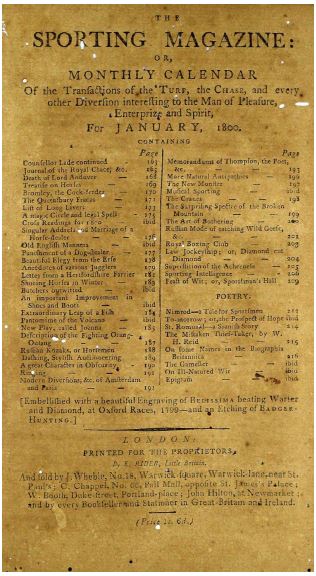 THE
SPORTING MAGAZINE:
OR,
MONTHLY CALENDAR
Of the Transactions of the TURF, the CHASE, and every
other Diversion interesting to the Man of Pleasure,
Enterprize and Spirit,
For JANUARY, 1800.
CONTAINING
Page
Counsellor Lade continued 163
Journal of the Royal Chace, &c. 165
Death of Lord Andover — 168
Treatise on Horses — 169
Bromley, the Cock-feeder 170
The Quixenbury Frolics —
Lift of Long Livers — 173
A magic Circle and legal Spell 175
Cross Readings for 1800 — ibid
Singular Address and Marriage of a
Horse-dealer — 176
Old English Manners — ibid
Punishment of a Dog-stealer 177
Beautiful Elegy from the Erse 178
Anecdotes of various Jugglers 179
Letter from a Herefordshire Farrier 181
Shoeing Horses in Winter 183
Butchers outwitted — ibid
An important Improvement in
Shoes and Boots — ibid
Extraordinary Leap of a Fish 184
Phantome of the Volcano ibid
New Play, called Joanna 185
Description of the Fighting Orang-
Outang — 187
Russian Kozaks, or Horsemen 188
Dashing, Stylish Authoneering 189
A great Character in Obscurity 190
Racing — 191
Modern Diversions, &c. of Amsterdam
and Paris — 191
Page
Memorandums of Thompson, the Poet,
&c. — 193
More Natural Antipathies — 196
The New Minister — 197
Musical Sporting — ibid
The Graces — 198
The Surprising Spectre of the Broken
Mountain — 199
The Art of Bothering — 200
Russian Mode of catching Wild Geese,
&c. — 201
Royal Boxing Club — 203
Law Jockeyship; or, Diamond cut
Diamond — 204
Superstitions of the Achenoele 205
Sporting Intelligence — 206
Feast of Wit; or, Sportsman's Hall 209
POETRY.
Nimrod—a Tale for Sportsmen 213
To-morrow; or, the Prospect of Hope ibid
St. Romuald—a Spanish Story 214
The Mistaken Thief-Taker, by W.
H. Reid — 215
On some Names in the Biographia
Britannica — 216
The Gamester — ibid
On Ill-Natured Wit — ibid
Epigram — ibid
[Embellished with a beautiful Engraving of HEDISSIMA beating Warter
and Diamond, at Oxford Races, 1799—and an Etching of BADGER-
HUNTING.]
LONDON:
PRINTED FOR THE PROPRIETORS,
D. E. RIDER, Little Britain,
And sold by J. Wheble, No. 18, Warwick-square, Warwick-lane, near St.
Paul's; C. Chappel, No. 66, Pall Mall, opposite St. James's Palace;
W. Booth, Duke-street, Portland-place; John Hilton, at Newmarket;
and by every Bookseller and Stationer in Great-Britain and Ireland.
(Price 1s. 6d.)